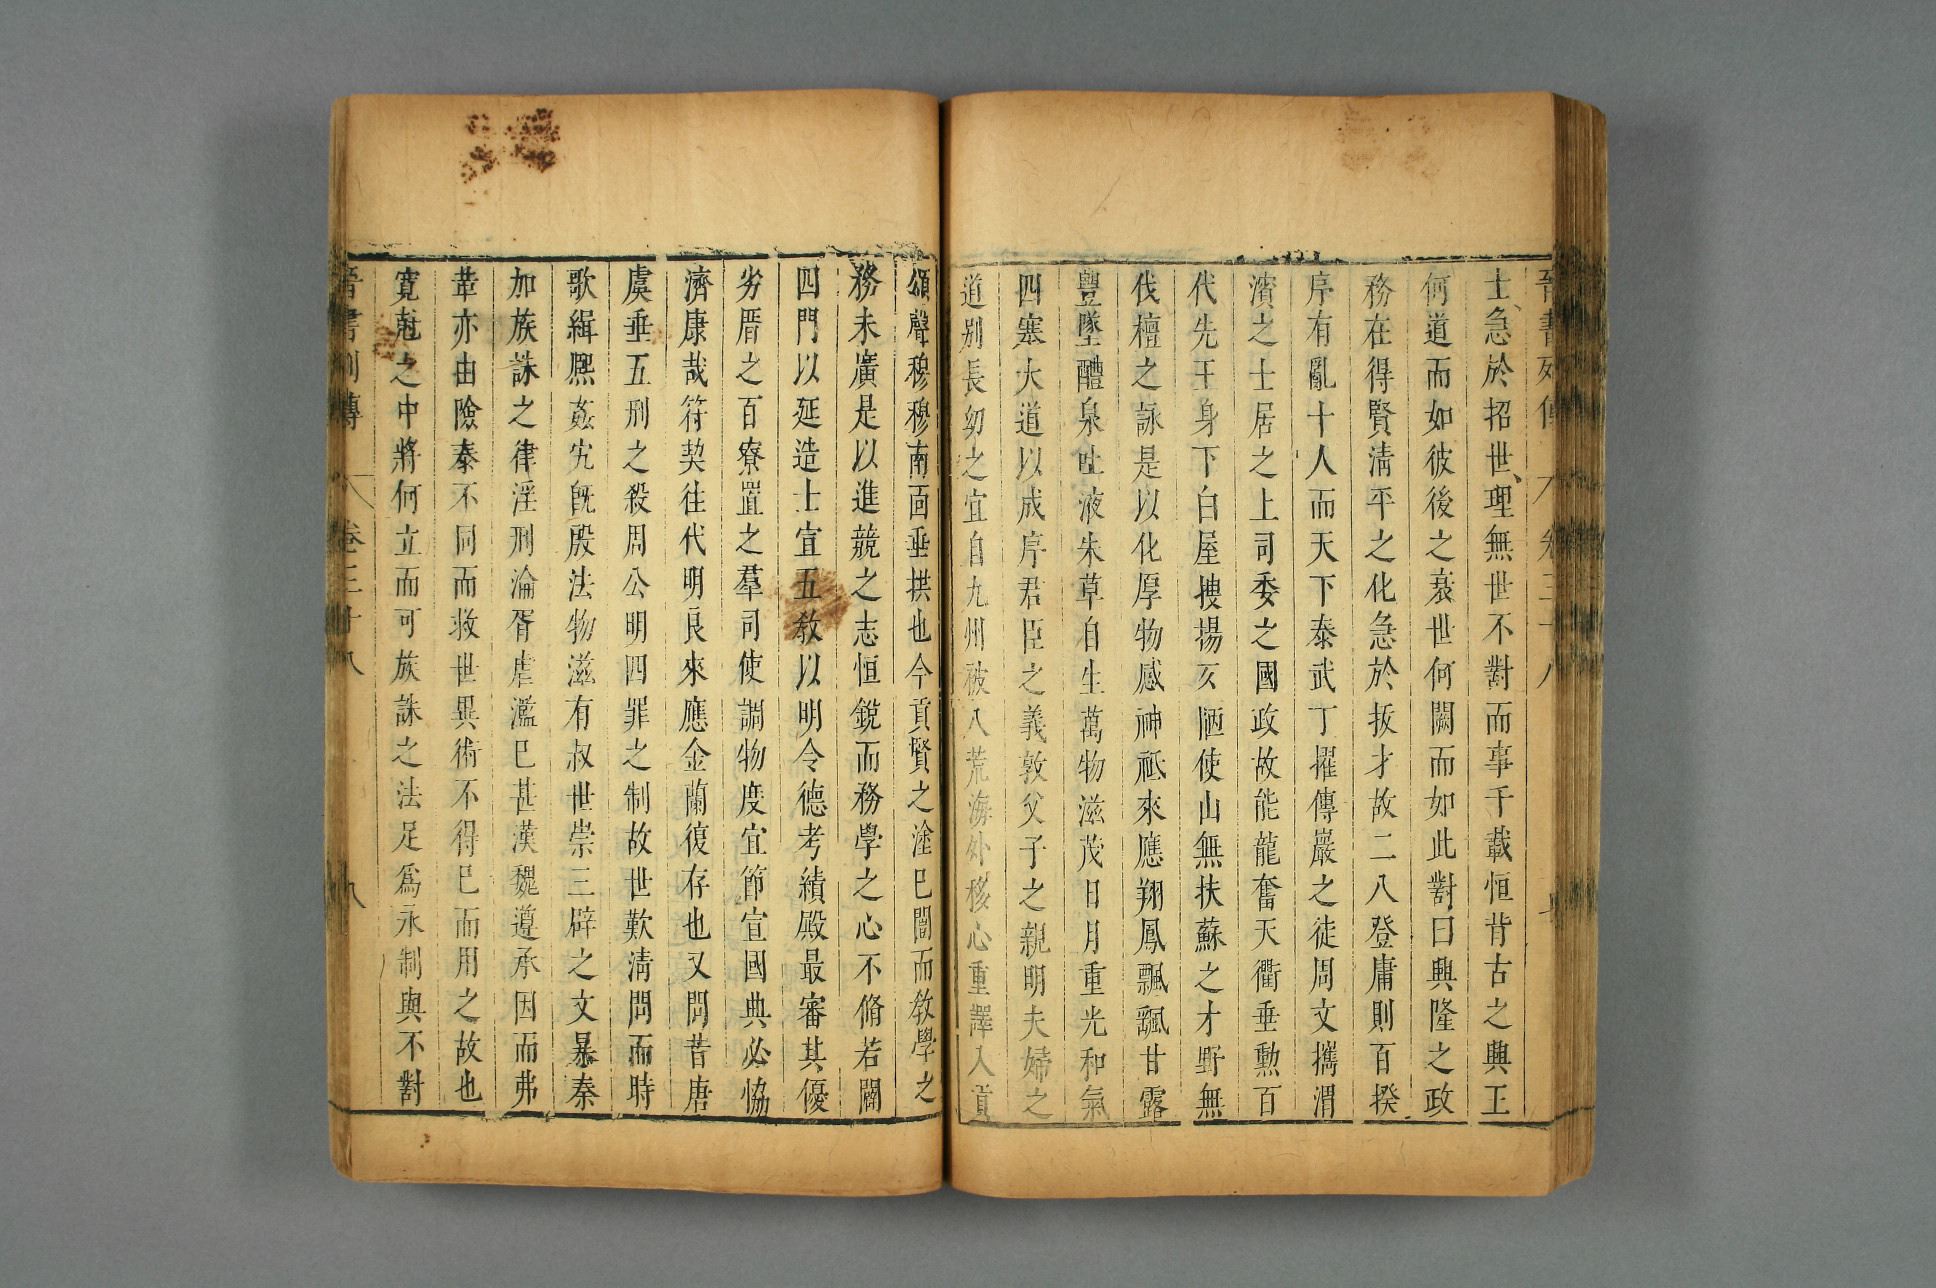 晉書列傳 八 卷三十八 七
士急於招世理無世不對而事千載恒背古之興王
何道而如彼後之衰世何闕而如此對曰興隆之政
務在得賢清平之化急於拔才故二八登庸則百揆
序有亂十人而天下泰武丁擢傳巖之徒周文攜渭
濱之士居之上司委之國政故能龍奮天衢垂勲百
代先王身下白屋搜揚仄陋使山無扶蘇之才野無
伐檀之詠是以化厚物感神祇來應翔鳳飄颻甘露
豐墜醴泉吐液朱草自生萬物滋茂日月重光和氣
四塞大道以成序君臣之義敦父子之親明夫婦之
道别長幼之宜自九州被八荒海外移心重譯入貢
頌聲穆穆南面垂拱也今貢賢之塗已闓而敎學之
務未廣是以進競之志恒銳而務學之心不脩若闢
四門以延造士宣五敎以明令德考績殿最審其優
劣厝之百寮置之羣司使調物度宜節宣國典必恊
濟康哉符契往代明良來應金蘭復存也又問昔唐
虞垂五刑之殺周公明四罪之制故世歎淸問而時
歌緝熙姦宄旣殷法物滋有叔世崇三辟之文暴秦
加族誅之律淫刑淪胥虐濫已甚漢魏遵承因而弗
革亦由險泰不同而救世異術不得已而用之故也
寬尅之中將何立而可族誅之法足爲永制與不對
晉書列傳 八 卷三十八 八